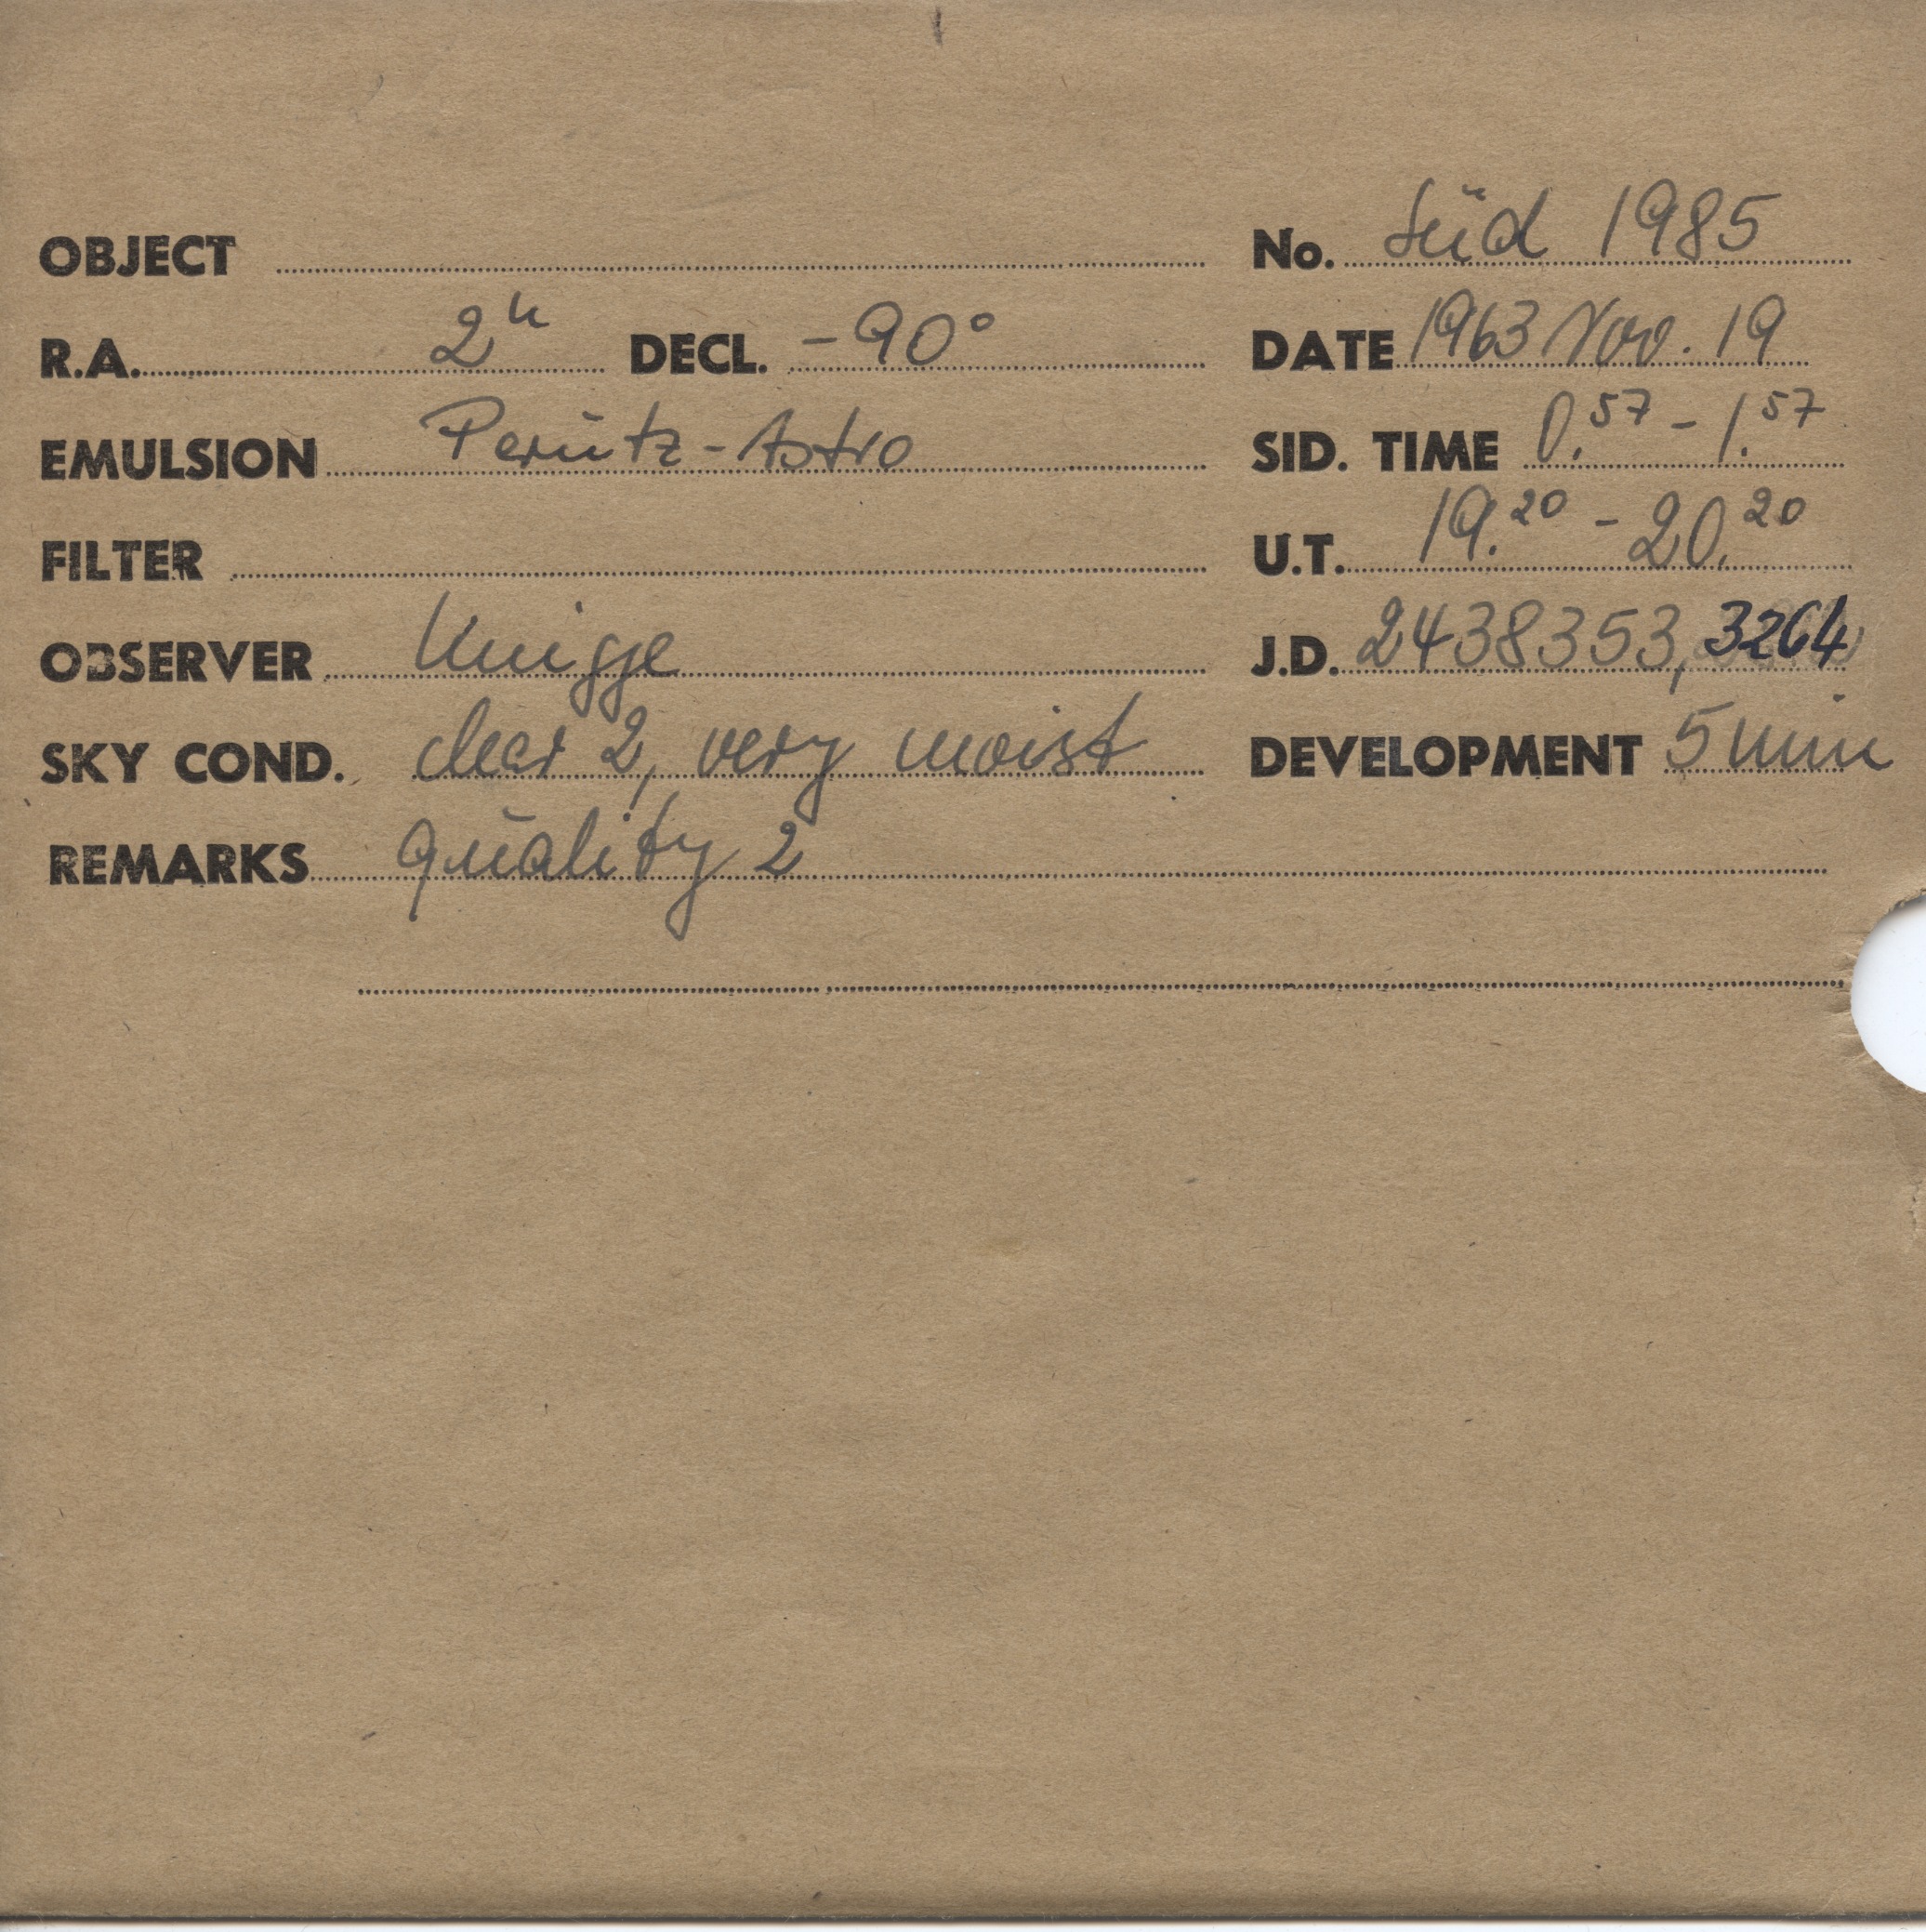 OBJECT No. Süd 1985
R.A. 2h DECL. -90° DATE 1963 Nov. 19
EMULSION Perutz-Astro SID. TIME 0.57 - 1.57
FILTER U.T. 19.20 - 20.20
OBSERVER Knigge J.D. 2438353,3264
SKY COND. clear 2, very moist DEVELOPMENT 5 min
REMARKS quality 2